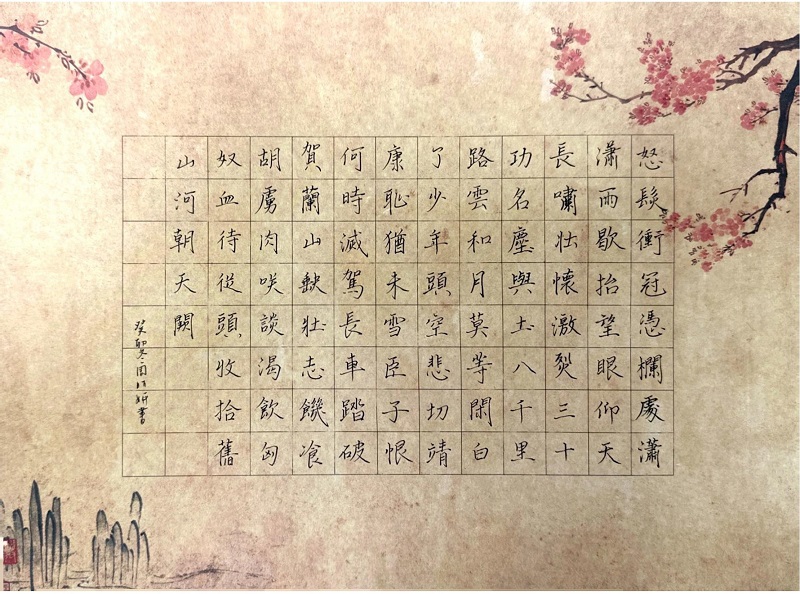 怒髮衝冠憑欄處瀟
瀟雨歇抬望眼仰天
長嘯壯懷激烈三十
功名塵與土八千里
路雲和月莫等閑白
了少年頭空悲切靖
康耻猶未雪臣子恨
何時滅駕長車踏破
賀蘭山缺壯志饑飡
胡虜肉咲談渴飲匈
奴血待從頭收拾舊
山河朝天闕
癸卯冬書